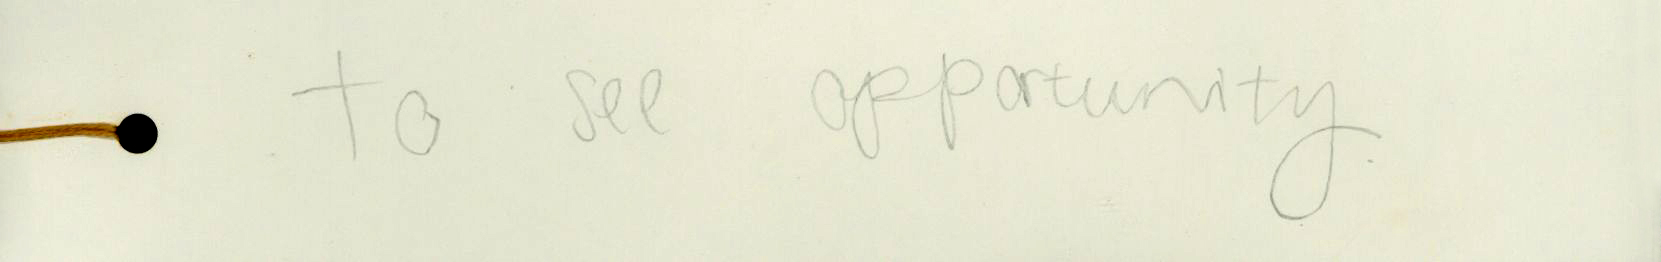 to see opportunity